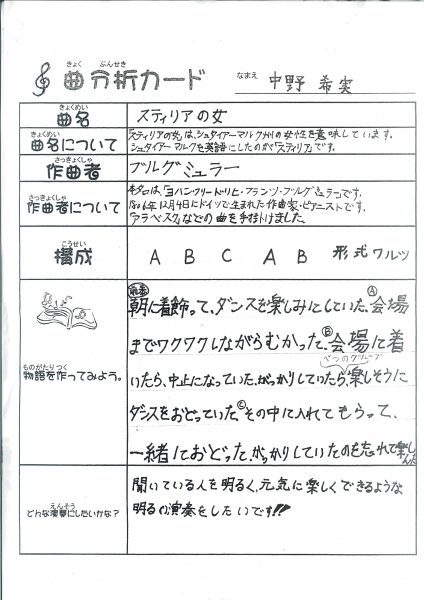 きょく ぶんせき
曲分析カード
なまえ 中野 希実
きょくめい
曲名
スティリアの女
きょくめい
曲名について
「スティリアの女」は、シュタイアーマルク州の女性を意味しています。
シュタイアーマルクを英語にしたのが「スティリア」です。
さっきょくしゃ
作曲者
ブルグミュラー
さっきょくしゃ
作曲者について
「ヨハン・フリードリヒ・フランツ・ブルグミュラー」です。
1806年12月4日にドイツで生まれた作曲家・ピアニストです。
「アラベスク」などの曲を手掛けました。
こうせい
構成
A B C A B 形式 ワルツ
ものがたり つく
物語を作ってみよう。
前奏 Ⓐ
朝に着飾って、ダンスを楽しみにしていた。会場
までワクワクしながらむかった。Ⓑ会場に着
べつのグループ
いたら、中止になっていた。がっかりしていたら、楽しそうに
ダンスをおどっていた。Ⓒその中に入れてもらって、
一緒におどった。がっかりしていたのを忘れて楽しんだ
えんそう
どんな演奏にしたいかな?
聞いている人を明るく、元気に楽しくできるような
明るい演奏をしたいです!!